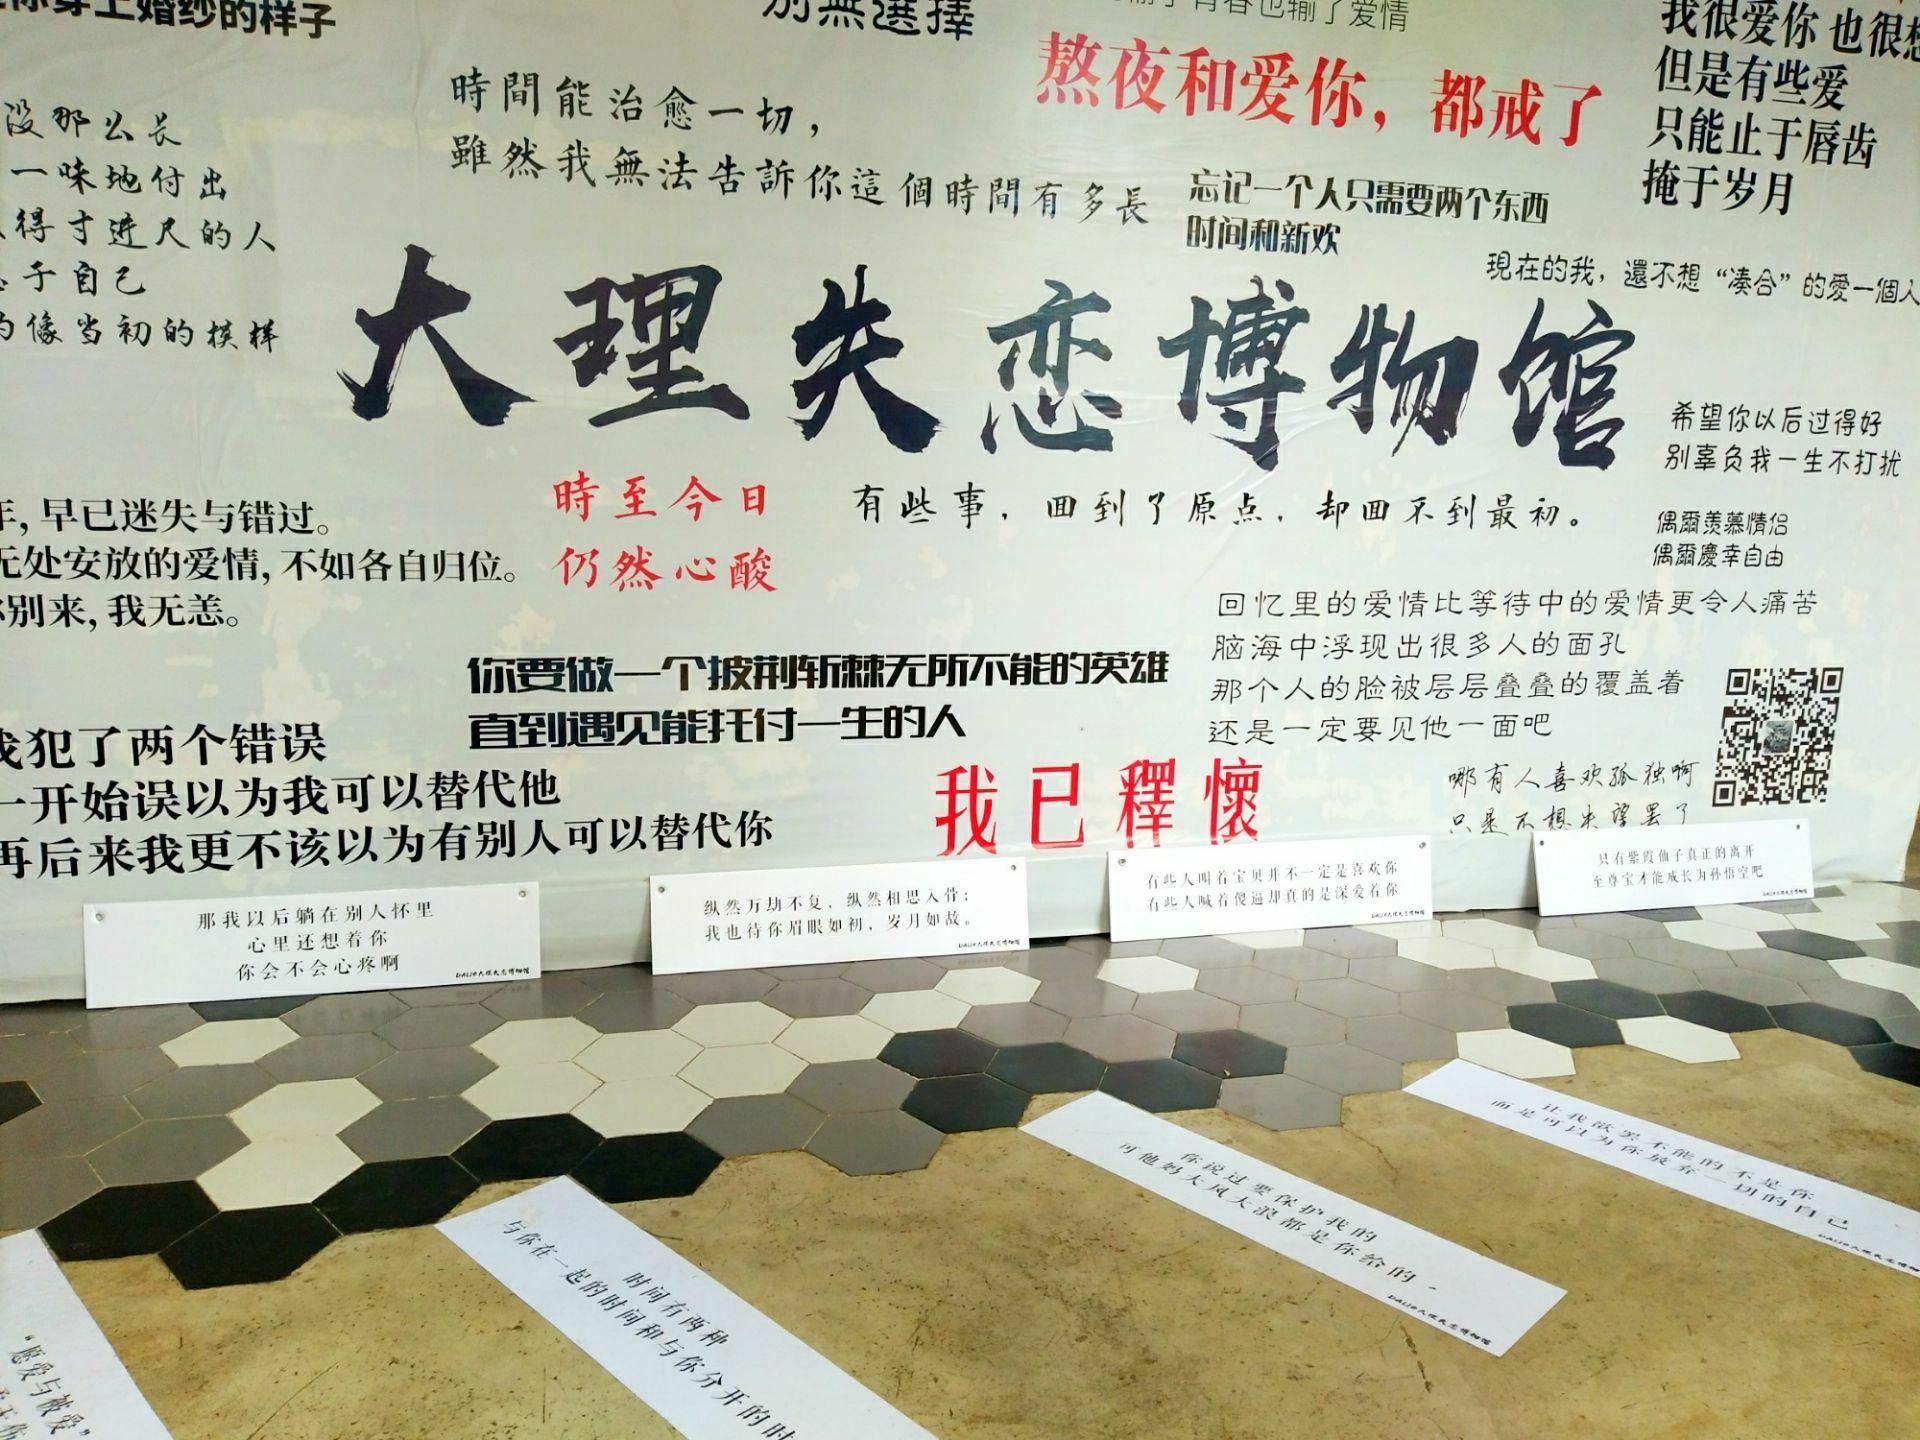 你穿上婚纱的样子
别無選擇
青春也输了爱情
我很爱你 也很想
但是有些爱
只能止于唇齿
掩于岁月
時間能治愈一切，
雖然我無法告訴你這個時間有多長
熬夜和爱你，都戒了
没那么长
一味地付出
得寸进尺的人
于自己
像当初的模样
忘记一个人只需要两个东西
时间和新欢
現在的我，還不想“凑合”的愛一個人
大理失恋博物馆
希望你以后过得好
别辜负我一生不打扰
時至今日
仍然心酸
有些事，回到了原点，却回不到最初。
偶爾羨慕情侣
偶爾慶幸自由
年，早已迷失与错过。
无处安放的爱情，不如各自归位。
别来，我无恙。
回忆里的爱情比等待中的爱情更令人痛苦
脑海中浮现出很多人的面孔
那个人的脸被层层叠叠的覆盖着
还是一定要见他一面吧
你要做一个披荆斩棘无所不能的英雄
直到遇见能托付一生的人
我犯了两个错误
一开始误以为我可以替代他
再后来我更不该以为有别人可以替代你
我已釋懷
哪有人喜欢孤独啊
只是不想失望罢了
那我以后躺在别人怀里
心里还想着你
你会不会心疼啊
DALI@大理失恋博物馆
纵然万劫不复，纵然相思入骨；
我也待你眉眼如初，岁月如故。
DALI@大理失恋博物馆
有些人叫着宝贝并不一定是喜欢你
有些人喊着傻逼却真的是深爱着你
DALI@大理失恋博物馆
只有紫霞仙子真正的离开
至尊宝才能成长为孙悟空吧
DALI@大理失恋博物馆
让我欲罢不能的不是你
而是可以为你放弃一切的自己
DALI@大理失恋博物馆
你说过要保护我的
可他妈大风大浪都是你给的。
DALI@大理失恋博物馆
时间有两种
与你在一起的时间和与你分开的时
“愿爱与被爱”